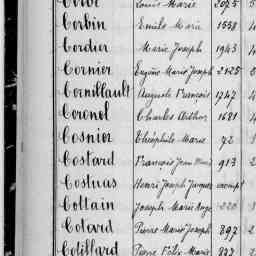 Louis Marie 2075
Corbin Emile Marie 1558
Cordier Marie Joseph 1943
Cornier Eugène Marie Joseph 2125
Cornillault Auguste François 1747
Coronel Charles Arthur 1681
Cosnier Théophile Marie 72
Costard François Jean Marie 913
Costuas Henri Joseph Jacques exempt
Cottain Joseph Marie Ange 220
Cotard Pierre Marie Joseph 897
Cotillard Pierre Félix Marie 877